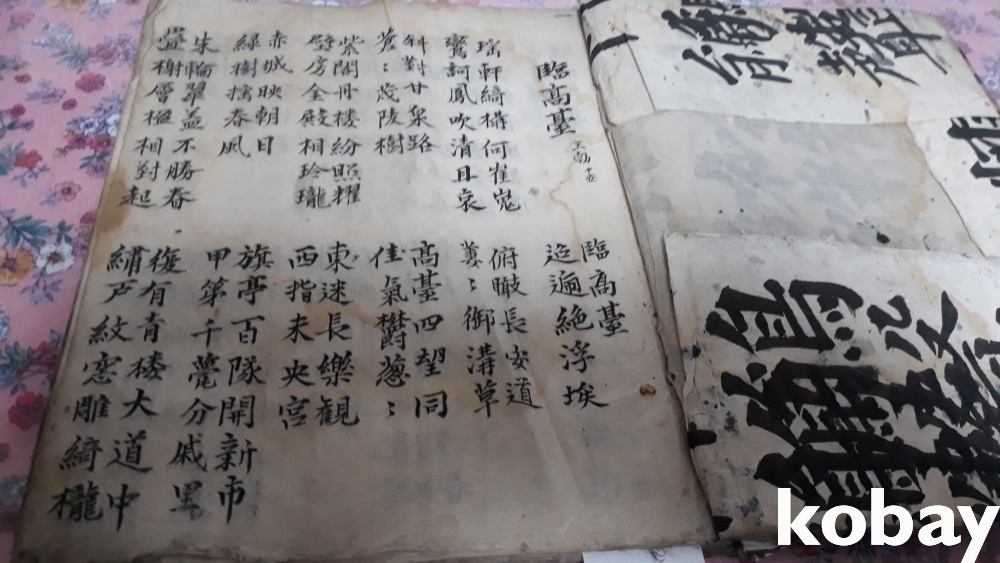 臨高臺
臨高臺
迢遍絶浮埃
瑶軒綺構何崔嵬
鸞謌鳳吹清且哀
俯瞰長安道
萋〻御溝草
斜對甘泉路
蒼〻茂陵樹
高臺四望同
佳氣欝葱〻
紫閣丹楼紛照耀
壁房金殿相玲瓏
東迷長樂観
西指未央宮
赤城映朝日
緑樹揺春風
旗亭百隊開新市
甲第千甍分戚里
朱輪翠盖不勝春
疊榭層楹相對起
復有青楼大道中
繡戸紋窓雕綺櫳
kobay